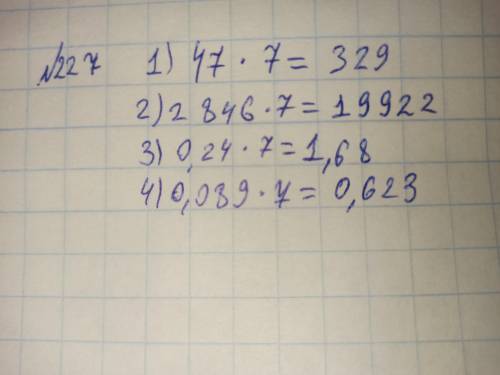 №227 1) 47 · 7 = 329
2) 2 846 · 7 = 19922
3) 0,24 · 7 = 1,68
4) 0,089 · 7 = 0,623